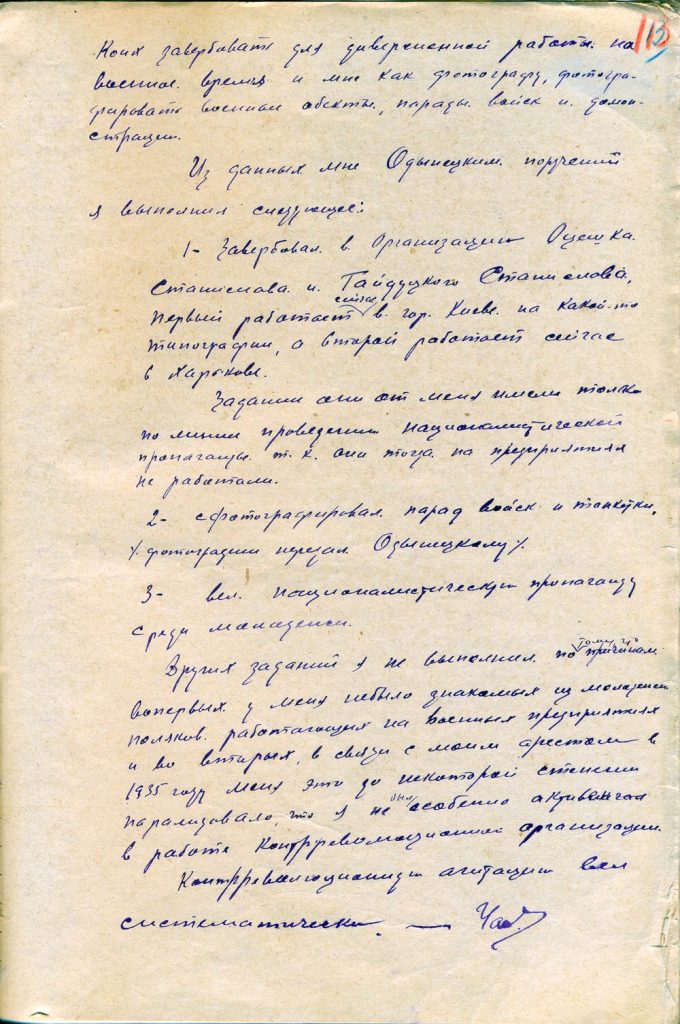 113
Коих завербовать для диверсионной работы на
военное время и мне как фотографу, фотогра-
фировать военные обекты, парады войск и демон-
страции.
Из данных мне Одынецким поручений
я выполнил следующее:
1- Завербовал в организацию Оцешка
Станислава и Гайдуцкого Станислова,
первый работает сейчас в гор. Киеве на какой-то
типографии, а второй работает сейчас
в Харькове.
Задании они от меня имели только
по линии проведении националистической
пропаганды т.к. они тогда на предприятиях
не работали.
2- сфотографировал парад войск и танкетки,
/. фотографии передал Одынецкому /.
3- вел националистическую пропаганду
среди молодежи.
Других заданий я не выполнил по тому что
вопервых у меня небыло знакомых из молодежи
поляков работающих на военных предприятиях
и во вторых, в связи с моим арестом в
1935 году меня это до некоторой степени
парализовало, что я не особенно
в работе контрреволюционной организации.
Контрреволюционную агитацию вел
систематически. —